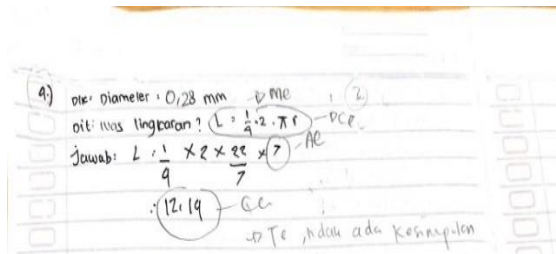 9.) Dik: Diameter : 0,28 mm → Me 2
Dit: luas lingkaran? L = 1/9 . 2 . π r → PCE
Jawab: L : 1/9 × 2 × 22/7 × 7 - AE
: 12,19 - CE
→ TE, tidak ada kesimpulan